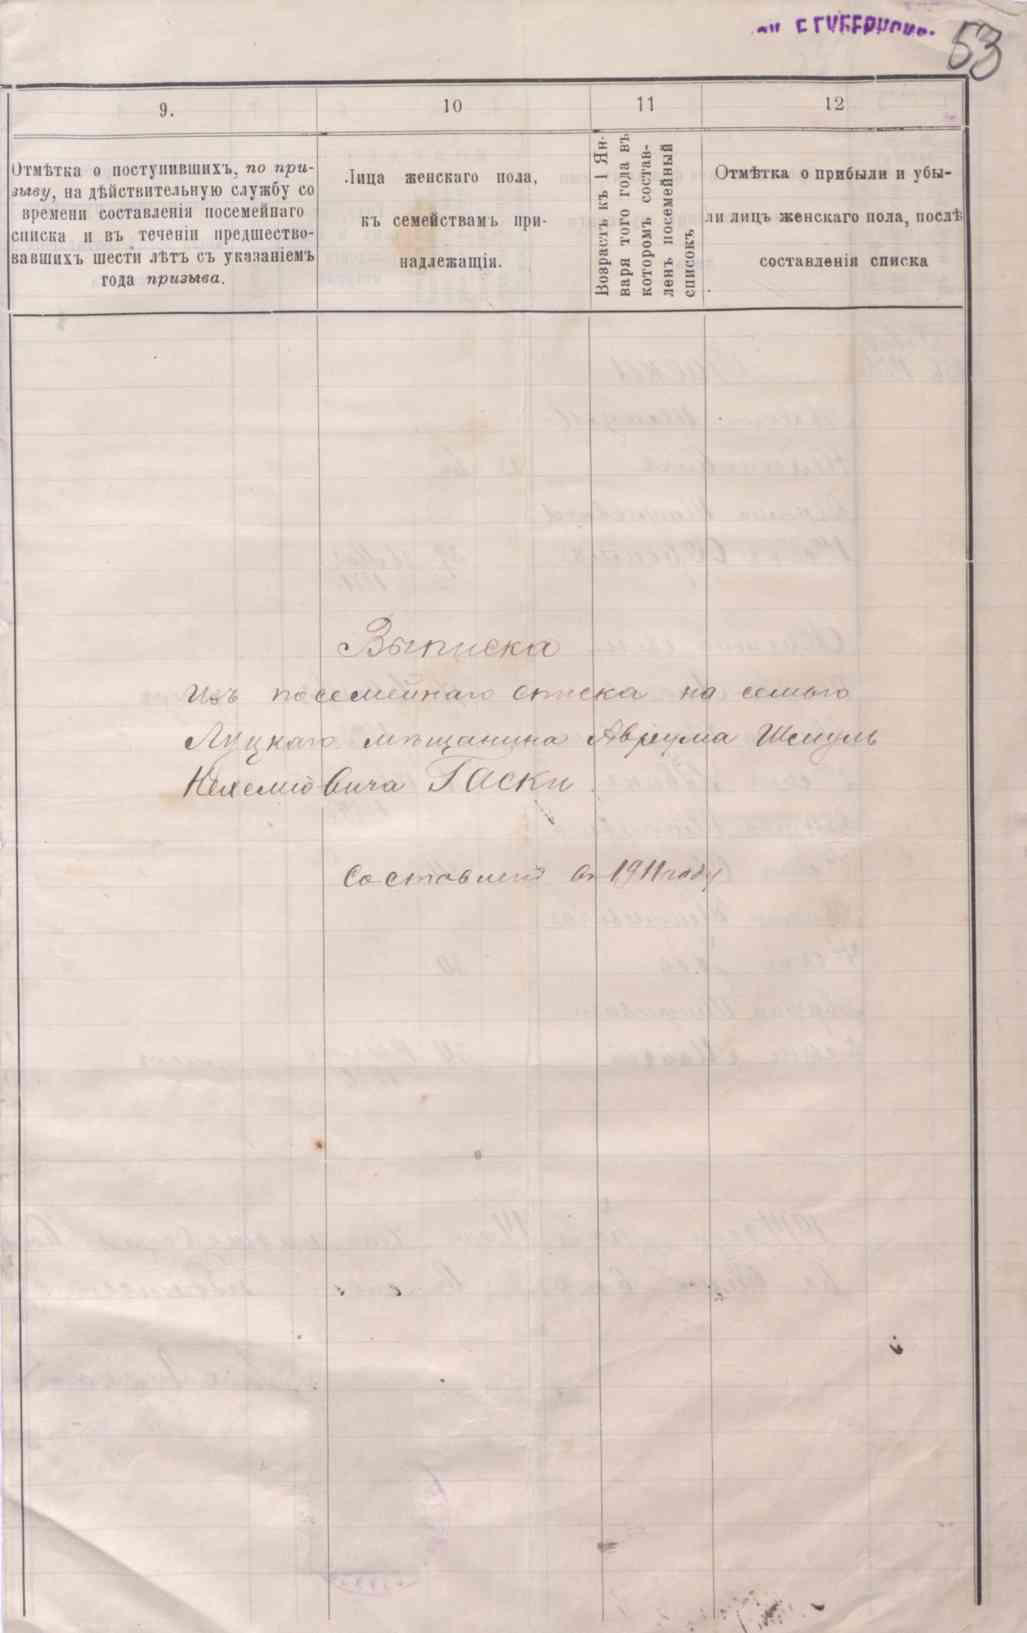 53
9.
10
11
12
Отмѣтка о поступившихъ, по при-
зыву, на дѣйствительную службу со
времени составленія посемейнаго
списка и въ теченіи предшество-
вавшихъ шести лѣтъ съ указаніемъ
года призыва.
Лица женскаго пола,
къ семействамъ при-
надлежащія.
Возрастъ къ 1 Ян-
варя того года въ
которомъ состав-
ленъ посемейный
списокъ
Отмѣтка о прибыли и убы-
ли лицъ женскаго пола, послѣ
составленія списка
Выписка
Изъ посемейнаго списка на семью
Луцкаго мѣщанина Авраума Шмуль
Нехемiовича Гаски
Составлен въ 1911 году